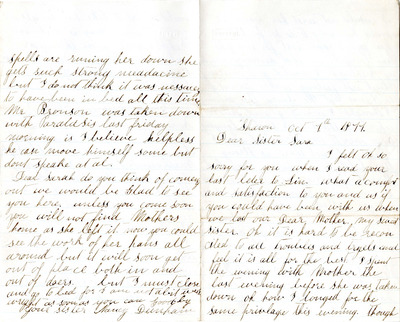 Sharon Oct 7th 1877.
Dear Sister Sara
I felt oh so
sorry for you when I read your
last letter to Lin. what a comfort
and satisfaction to you and us if
you could have been with us when
we lost our Dear Mother, my Dear
Sister. oh it is hard to be recon
ciled to all troubles and
feel it is all for the best I spent
the evening with Mother the
last evening before she was taken
down oh how I longed for the
same privilege this evening though
spells are runing her down she
gets such strong meadacine
but I do not think it was nessary
to have been in bed all this time
Mr Bronson was taken down
with Paralitsis last friday
morning is I believe helpless
he can move himself some but
dont speake at al.
Deal Sarah do you think of coming
out we would be glad to see
you here, unless you come soon
you will not find Mothers
home as she left it now you could
see the work of her hans all
around but it will soon get
out of place both in and
out of doors. but I must close
and go to bed for I am
write as soon as you can good by
Your Sister Nancy Dunham